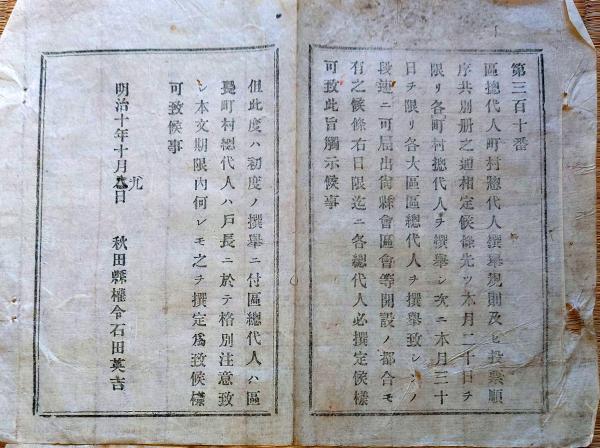 第三百十番
區總代人町村惣代人撰擧規則及ヒ投票順
序共別册之通相定候條先ツ本月二十日ヲ
限リ各町村総代人ヲ撰擧シ次ニ本月三十
日ヲ限リ各大區區總代人ヲ撰擧致レシノ
段迅ニ可届出尚縣會區會等開設ノ都合モ
有之候條右日限迄ニ各總代人必撰定候樣
可致此旨觸示候事
但此度ハ初度ノ撰擧ニ付區總代人ハ區
長町村總代人ハ戸長ニ於テ格別注意致
シ本文期限内何レモ之ヲ撰定爲致候樣
可致候事
明治十年十月九日
秋田縣權令石田英吉